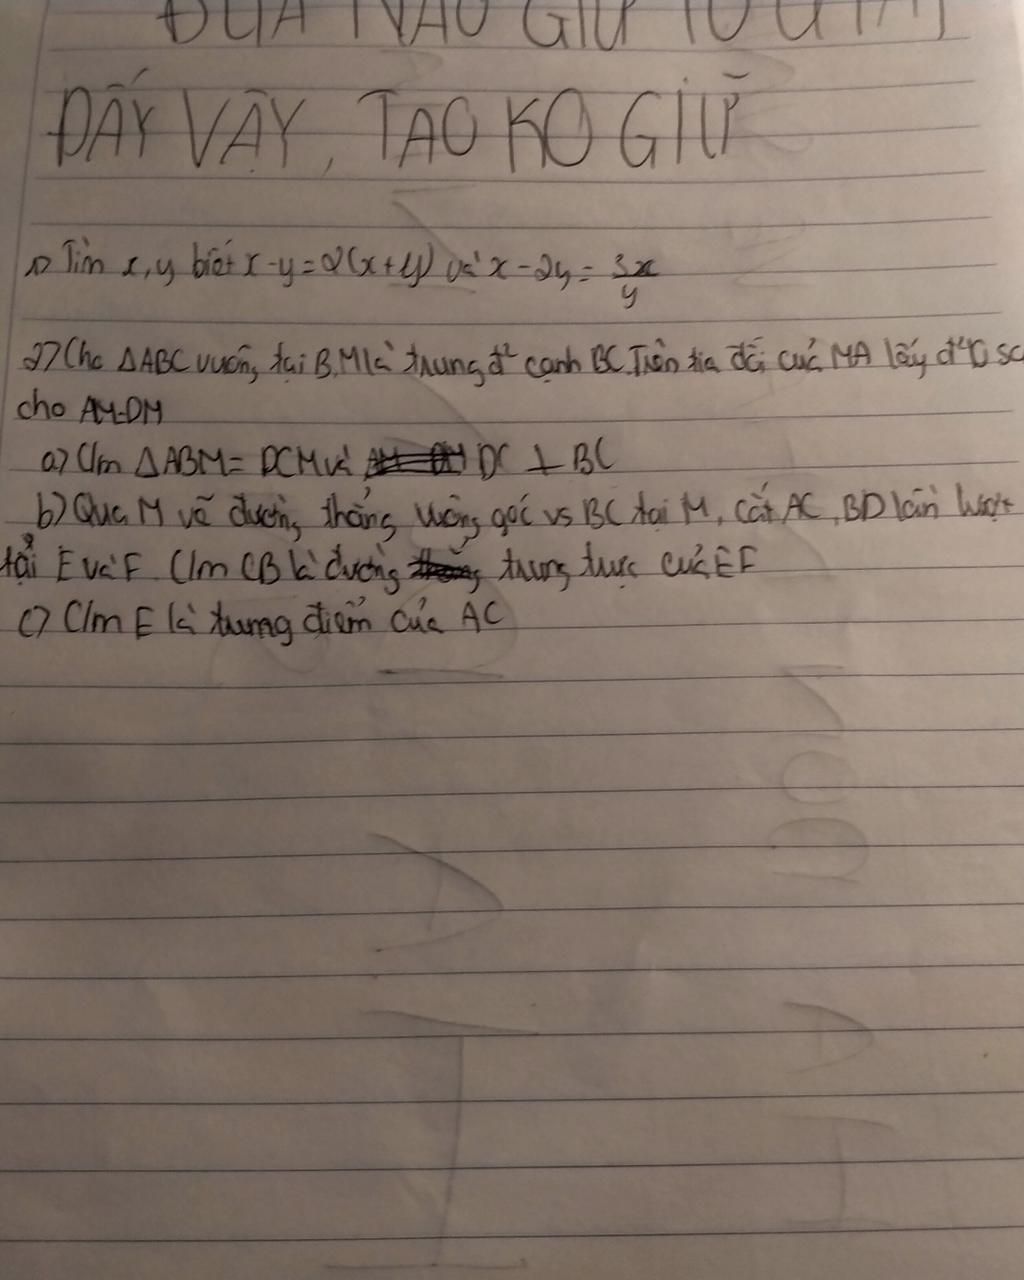 ĐỨA NÀO GIỮ TỜ GIẤY
ĐẤY VẬY, TAO KO GIỮ
1) Tìm x, y biết x-y=2(x+y) và x-2y= 3x/y
2) Cho △ABC vuông tại B. M là trung đ² cạnh BC. Trên tia đối của MA lấy đ² D sc
cho AM=DM
a) C/m △ABM= DCM và DC ⊥ BC
b) Qua M vẽ đường thẳng vuông góc vs BC tại M, cắt AC, BD lần lượt
tại E và F. C/m CB là đường trung trực của EF
c) C/m E là trung điểm của AC